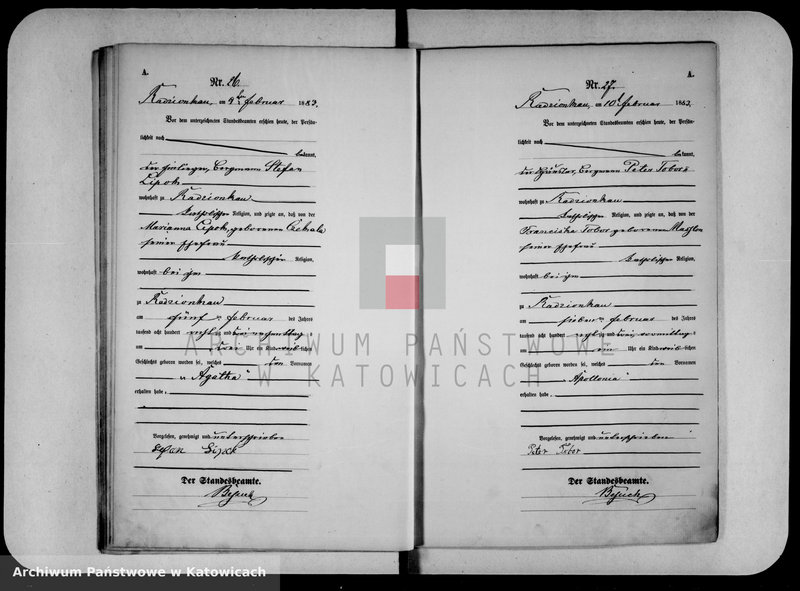 A.
Nr. 26.
Radzionkau, am 9ten Februar 1883.
Vor dem unterzeichneten Standesbeamten erschien heute, der Persön-
lichkeit nach
bekannt,
der Einlieger, Bergmann Stefan
Cipok
wohnhaft zu Radzionkau
katholischer Religion, und zeigte an, daß von der
Marianna Cipok, geborenen
seiner Ehefrau
katholischer Religion,
wohnhaft bei ihm
zu Radzionkau
am fünf ten Februar des Jahres
tausend acht hundert achtzig und drei nachmittags
um drei Uhr ein Kind weiblichen
Geschlechts geboren worden sei, welches den Vornamen
„Agatha“
erhalten habe.
Vorgelesen, genehmigt und unterschrieben
Der Standesbeamte.
A.
Nr. 27.
Radzionkau, am 10t Februar 1883.
Vor dem unterzeichneten Standesbeamten erschien heute, der Persön-
lichkeit nach
bekannt,
der Häusler, Bergmann Peter Tobor
wohnhaft zu Radzionkau
katholischer Religion, und zeigte an, daß von der
Franciska Tobor geborenen
seiner Ehefrau
katholischer Religion,
wohnhaft bei ihm
zu Radzionkau
am sieben ten Februar des Jahres
tausend acht hundert achtzig und drei vormittags
um ein Uhr ein Kind weiblichen
Geschlechts geboren worden sei, welches den Vornamen
„Apollonia“
erhalten habe.
Vorgelesen, genehmigt und unterschrieben
Peter Tobor
Der Standesbeamte.
ARCHIWUM PAŃSTWOWE
W KATOWICACH
Archiwum Państwowe w Katowicach